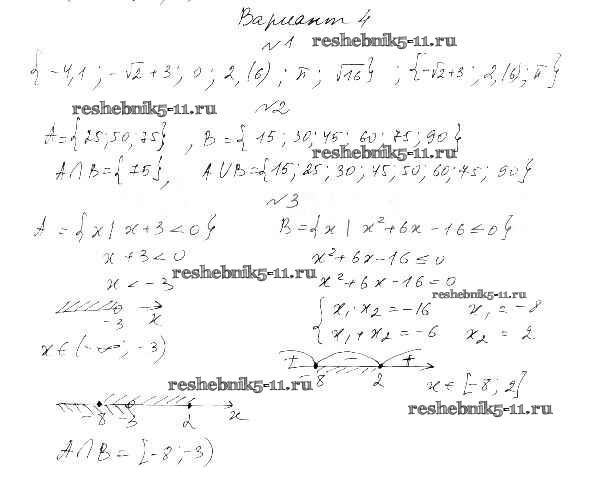 Вариант 4
№1 reshebnik5-11.ru
{-4,1; -√2+3; 0; 2,(6); π; √16}; {-√2+3; 2,(6); π}
reshebnik5-11.ru №2
A={25; 50; 75}, B={15; 30; 45; 60; 75; 90}
reshebnik5-11.ru
A∩B={75}, A∪B={15; 25; 30; 45; 50; 60; 75; 90}
№3
A={x| x+3<0} B={x| x²+6x-16≤0}
x+3<0 x²+6x-16≤0
reshebnik5-11.ru
x<-3 x²+6x-16=0
reshebnik5-11.ru
-3 x { x₁·x₂=-16 x₁=-8
x∈(-∞; -3) x₁+x₂=-6 x₂=2
+ - +
-8 2
reshebnik5-11.ru x∈[-8; 2]
reshebnik5-11.ru
-8 -3 2 x
A∩B=[-8; -3)